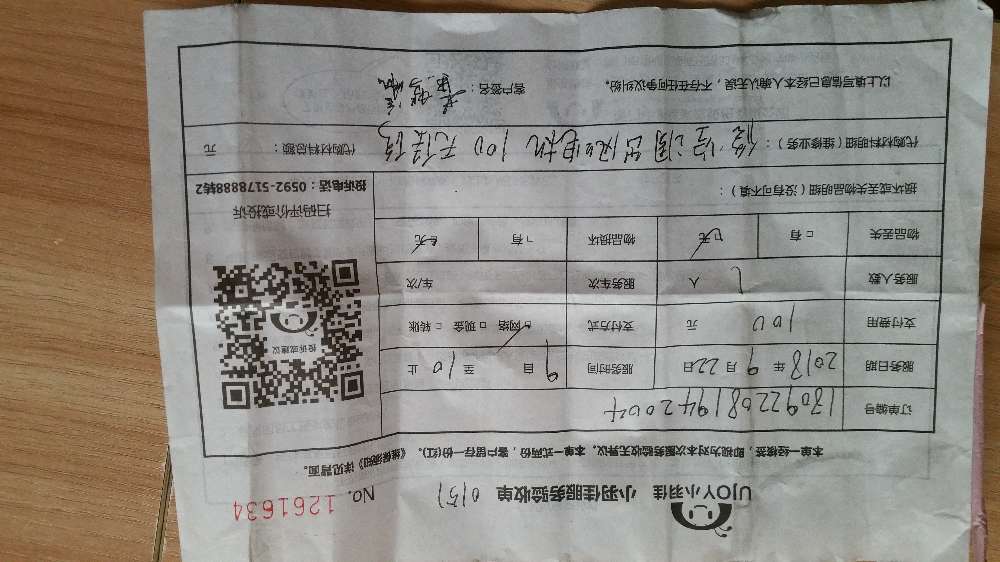 UJOY小羽佳 小羽佳服务验收单 0151 No. 1261634
本单一经签签，即视为对本次服务验收无异议。本单一式两份，客户留存一份(红)。《维保须知》详见背面。
订单编号 180922081942004
服务日期 2018 年 9 月 22 日 服务时间 9 自 至 10 止
支付费用 100 元 支付方式 ☑网络 □现金 □转账
服务人数 1 人 服务车次 车/次
物品丢失 □有 ☑无 物品损坏 □有 ☑无
损坏或丢失物品明细（没有可不填）：
代购材料明细（维修业务）： 空调 电机 100 天 代购材料总额： 元
以上填写信息已经本人确认无误，不存在任何争议纠纷。 客户签名：
投诉或建议
扫码评价或投诉
投诉电话：0592-5178888转2